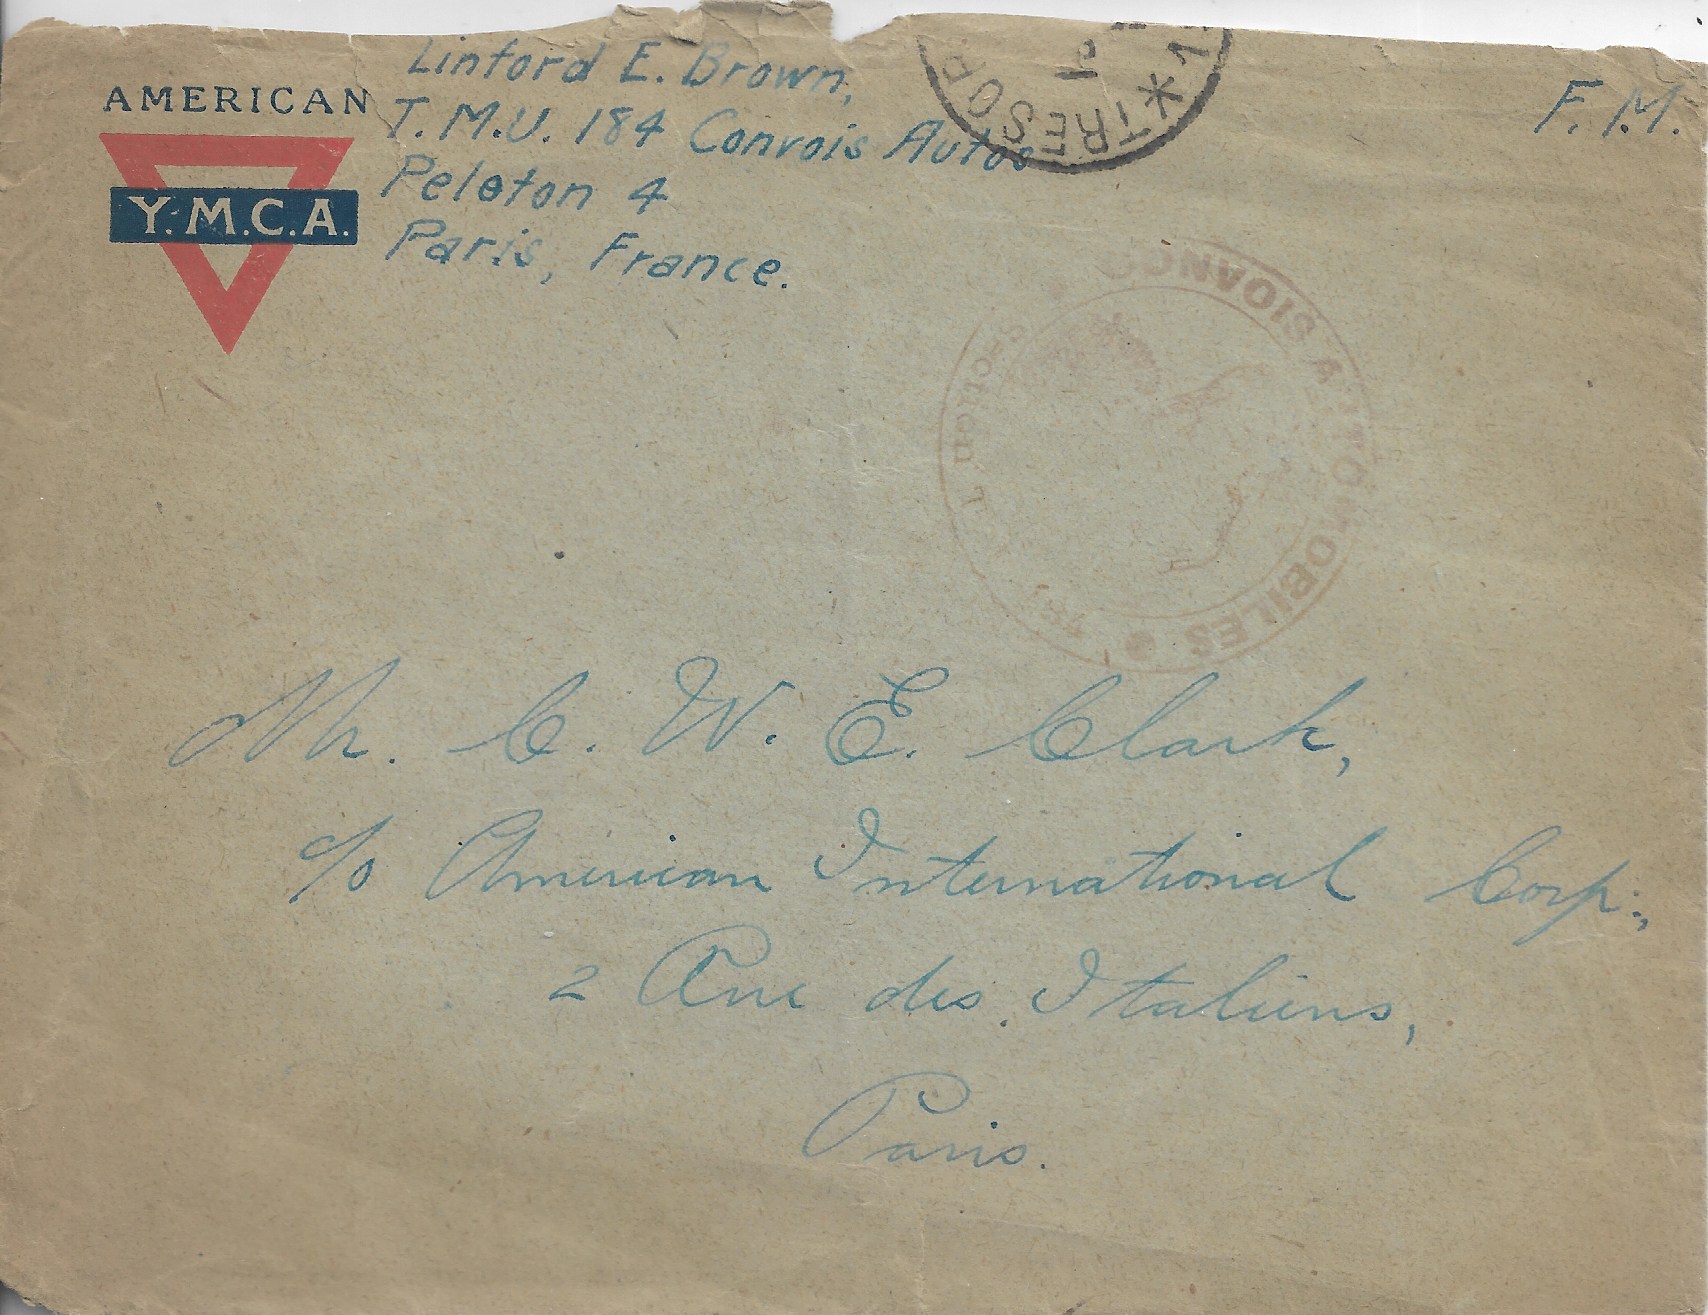 AMERICAN
Y.M.C.A.
Linford E. Brown,
T.M.U. 184 Convois Autos
Peloton 4
Paris, France.
F.M.
*TRESOR
CONVOIS AUTOMOBILES
Section T
184
Mr. C. W. E. Clark,
c/o American International Corp.,
2 Rue des Italiens,
Paris.